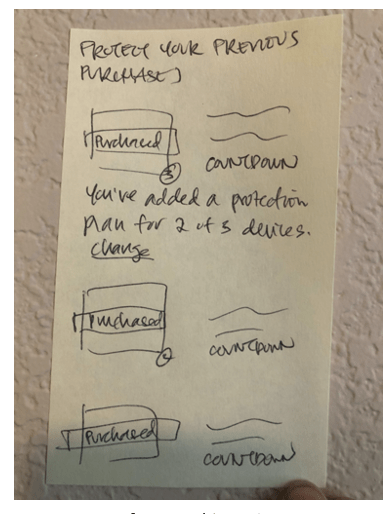 PROTECT YOUR PREVIOUS
PURCHASES
Purchased
COUNTDOWN
You've added a protection
plan for 2 of 5 devices.
change
Purchased
COUNTDOWN
Purchased
COUNTDOWN